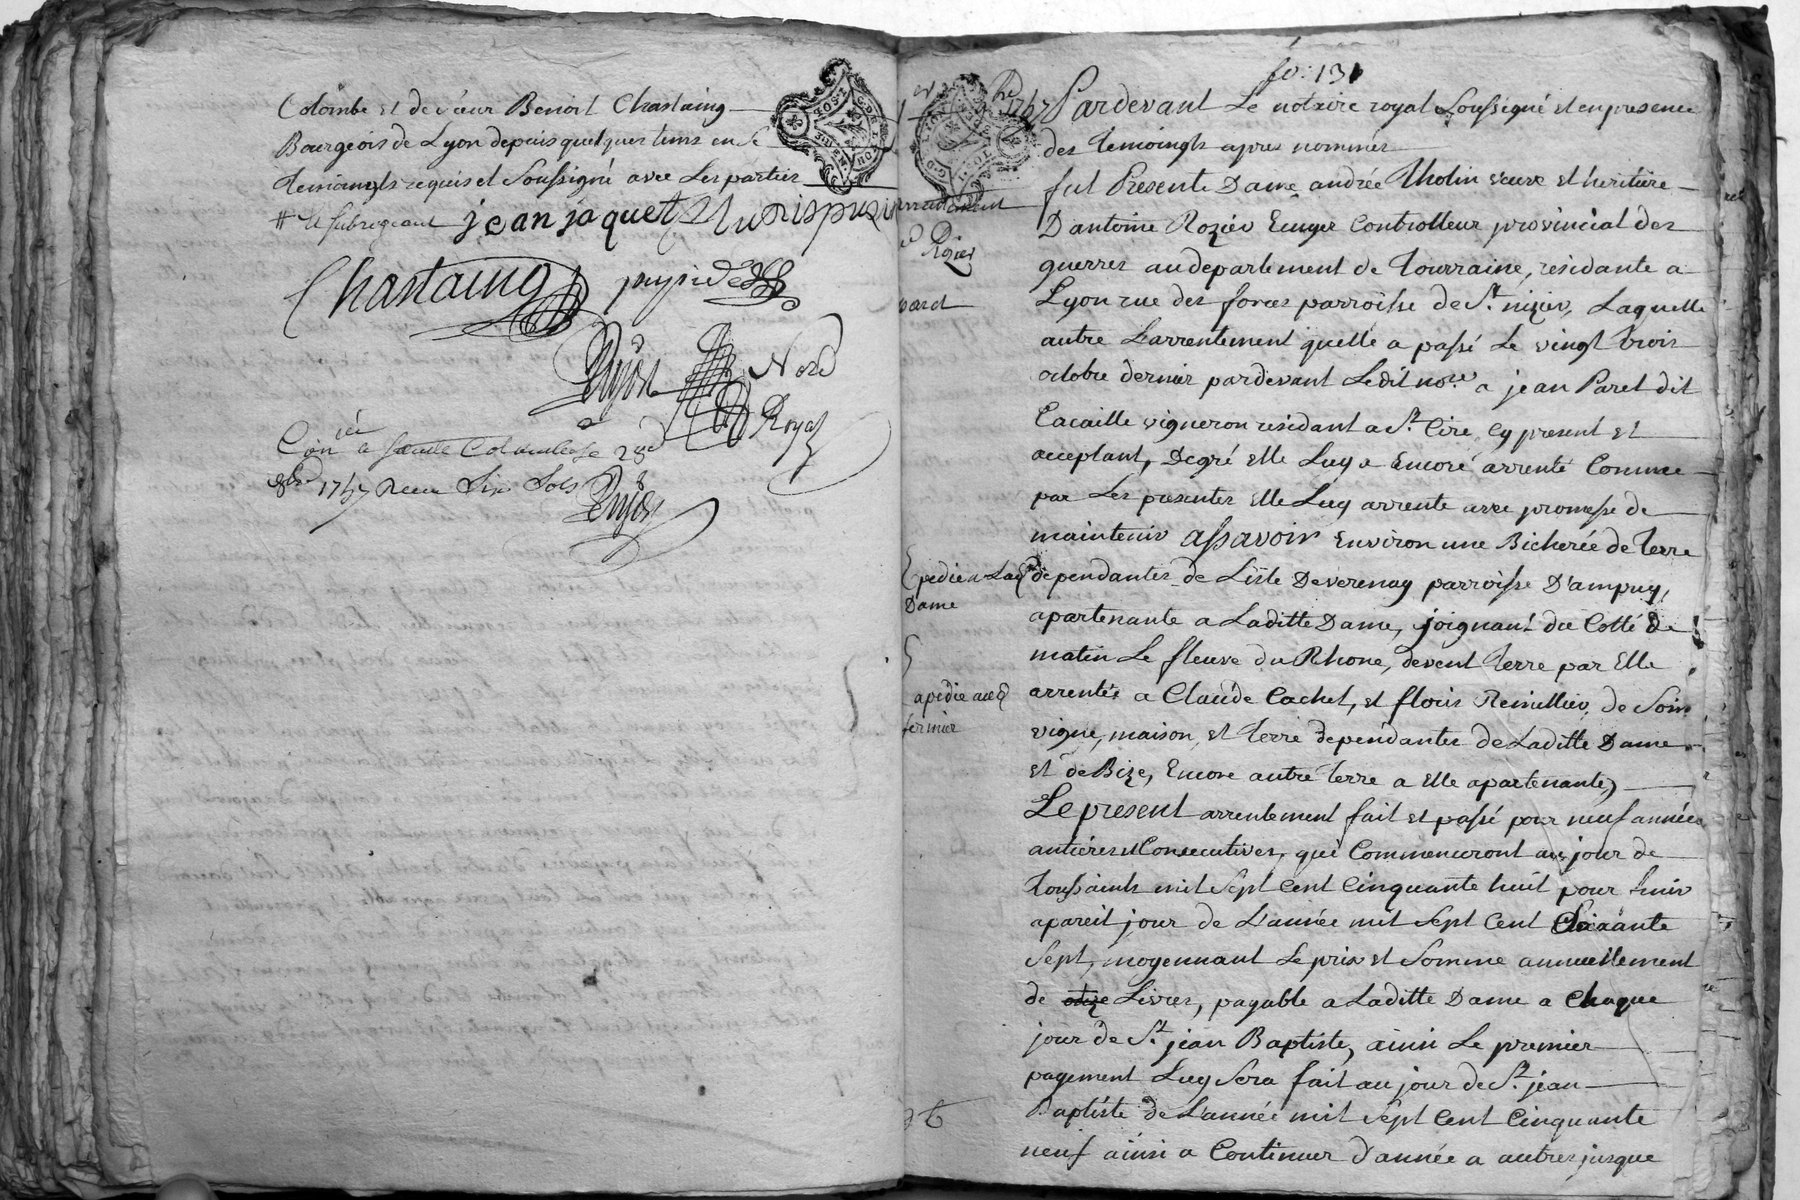 Colombe et de sieur Benoit Chastaing
Bourgeois de Lyon depuis quelques tems en S
temoingts requis et soussigné avec les parties
jean jaquet
Chastaing
Dujon
Nore
Royal
Con a Sainte Colombe le 28e
8bre 1757 Reçu six sols
Dujon
fo: 131
Pardevant Le notaire royal soussigné et en presence
des temoingts apres nommes
fut Presente Dame andrée Tholin veuve et heritiere
D'antoine Rozier Ecuyer Controlleur provincial des
guerres au departement de Tourraine, residante a
Lyon rue des forces parroisse de St. nizier, Laquelle
autre L'arrentement quelle a passé Le vingt trois
octobre dernier pardevant Ledit nore. a jean Paret dit
Lacaille vigneron residant a St. Cire, cy present et
acceptant, Degré elle Luy a Encore arrenté Comme
par Les presentes elle Luy arrente avec promesse de
maintenir assavoir Environ une Bicherée de terre
dependantes de L'isle De verenay parroisse D'ampuy,
apartenante a Laditte Dame, joignant du Cotté de
matin Le fleuve du Rhone, devent terre par Elle
arrentée a Claude Cachet, et floris Remillier, de Soir
vigne, maison et terre dependantes de Laditte Dame
et de Bize, Encore autre terre a Elle apartenante,
Le present arrentement fait et passé pour neuf années
antieres et Consecutives, qui Commenceront au jour de
toussaints mil sept cent Cinquante huit pour finir
apareil jour de L'année mil sept cent Soixante
sept, moyennant Le prix et somme annuellement
de Livres, payable a Laditte Dame a Chaque
jour de St. jean Baptiste, ainsi Le premier
payement Luy sera fait au jour de St. jean
Baptiste de L'année mil sept cent Cinquante
neuf ainsi a Continuer d'année a autres jusque
Rozier
paret
Expedie a Lad
Dame
fermier